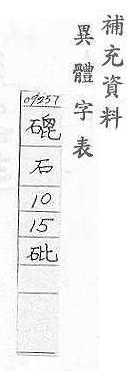 補充資料
異體字表
07257
磇
石
10
15
砒